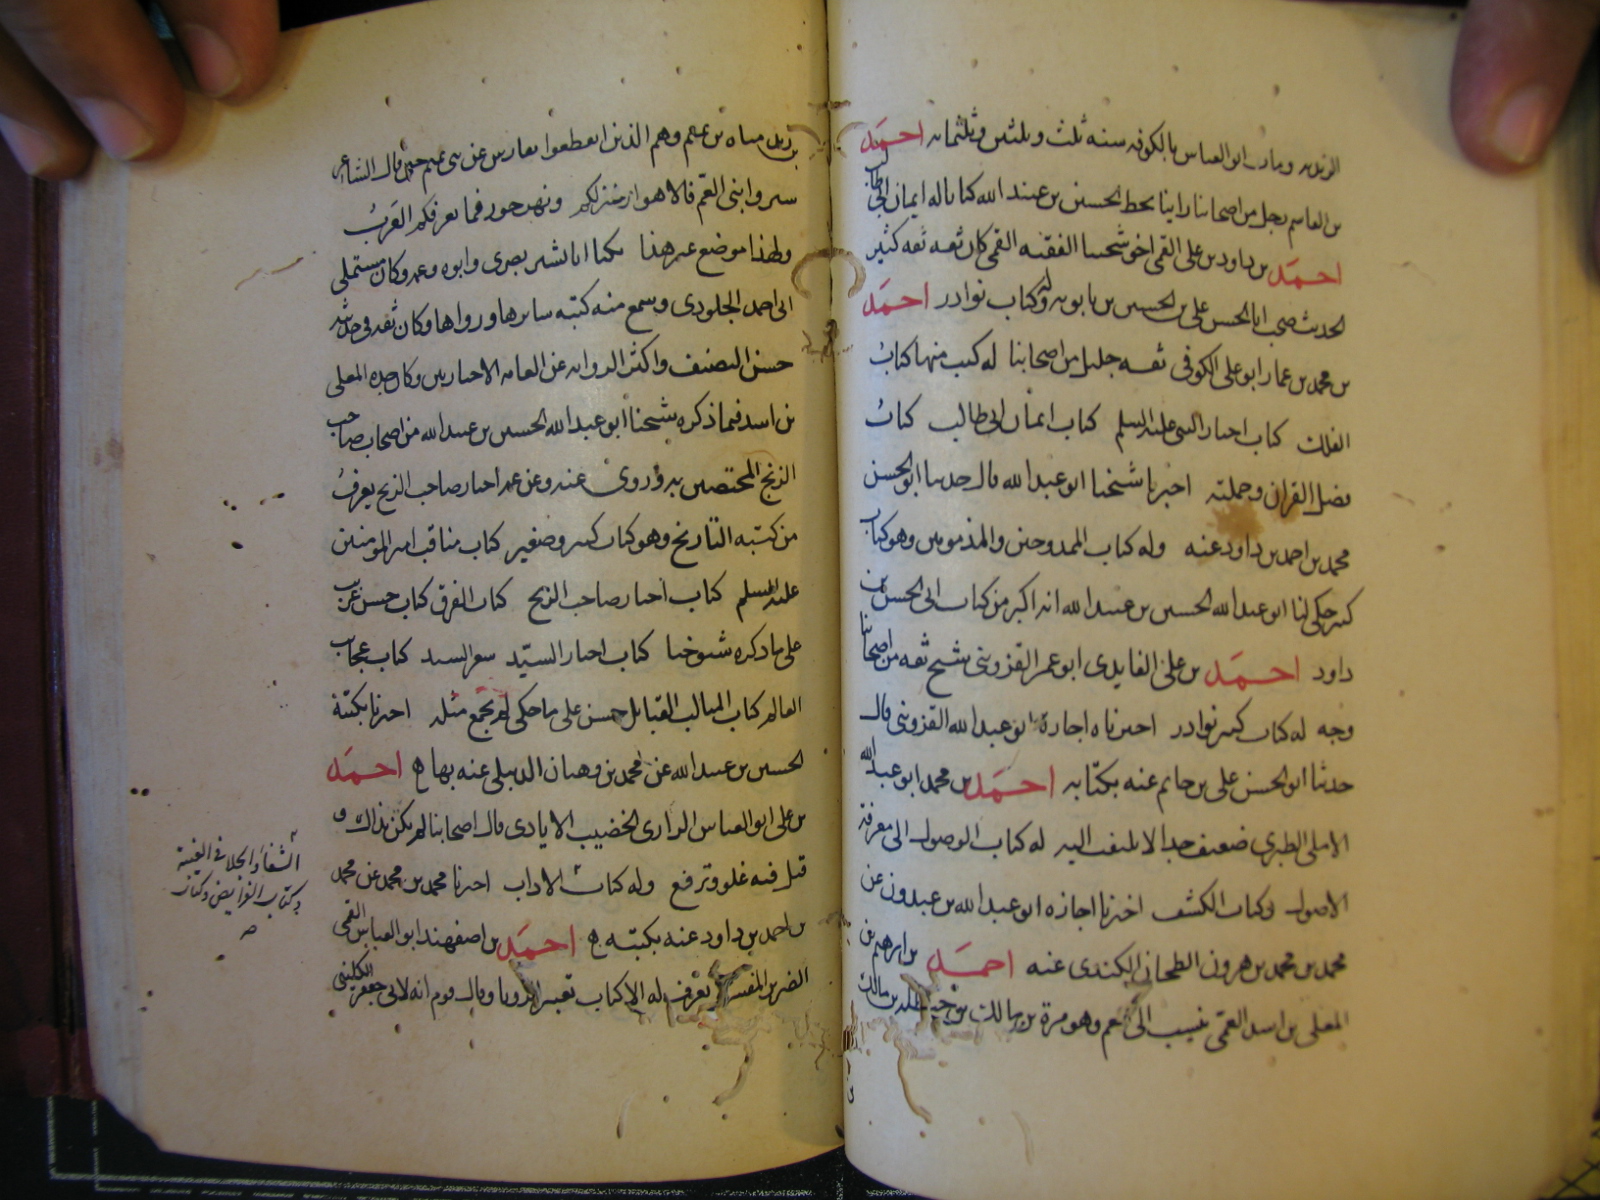 الزيدية ومات ابو العباس بالكوفة سنة ثلث وثلثين وثلثمائة احمد
بن القاسم رجل من اصحابنا راينا بخط الحسين بن عبيد الله كتابا له ايمان ابي طالب
احمد بن داود بن علي القمي اخو شيخنا الفقيه القمي كان ثقة ثقة كثير
الحديث صحب ابا الحسن علي بن الحسين بن بابويه وله كتاب نوادر احمد
بن محمد بن عمار ابو علي الكوفي ثقة جليل من اصحابنا له كتب منها كتاب
الفلك كتاب اخبار النبي عليه السلم كتاب ايمان ابي طالب كتاب
فضل القران وحملته اخبرنا شيخنا ابو عبد الله قال حدثنا ابو الحسن
محمد بن احمد بن داود عنه وله كتاب الممدوحين والمذمومين وهو كتاب
كبير حكى لنا ابو عبد الله الحسين بن عبيد الله انه اكبر من كتاب ابي الحسن بن
داود احمد بن علي الفايدي ابو عمر القزويني شيخ ثقة من اصحابنا
وجه له كتاب كبير نوادر اخبرناه اجازة ابو عبد الله القزويني قال
حدثنا ابو الحسن علي بن حاتم عنه بكتابه احمد بن محمد ابو عبد الله
الاملي الطبري ضعيف جدا لا يلتفت اليه له كتاب الوصول الى معرفة
الاصول وكتاب الكشف اخبرنا اجازه ابو عبد الله بن عبدون عن
محمد بن محمد بن هرون الطحان الكندي عنه احمد بن ابرهيم بن
المعلى بن اسد العمي ينسب الى العم وهو مرة بن مالك بن حنظلة بن مالك
بن زيد مناه بن تميم وهم الذين انقطعوا بفارس عن بني تميم حتى قال الشاعر
سيروا بني العم فالاهواز منزلكم ونهر جور فما يعرفكم العرب
ولهذا موضع غير هذا يكنا ابا بشر بصري وابوه وعمه وكان مستملي
ابي احمد الجلودي وسمع منه كتبه سائرها ورواها وكان ثقة في حديثه
حسن التصنيف واكثر الرواية عن العامة الاخباريين وكان جده المعلى
بن اسد فيما ذكره شيخنا ابو عبد الله الحسين بن عبيد الله من اصحاب صاحب
الزنج المختصين به وروى عنه وعن عمه اخبار صاحب الزنج يعرف
من كتبه التاريخ وهو كتاب كبير وصغير كتاب مناقب امير المومنين
عليه السلم كتاب اخبار صاحب الزنج كتاب الفرق كتاب حسن غريب
على ما ذكره شيوخنا كتاب اخبار السيد شعر السيد كتاب عجائب
العالم كتاب المثالب القبايل حسن على ما حكي لم يجمع مثله اخبرنا بكتبه
الحسين بن عبيد الله عن محمد بن وهبان الدبيلي عنه بها ه احمد
بن علي ابو العباس الرازي الخضيب الايادي قال اصحابنا لم يكن بذاك و
قيل فيه غلو وترفع وله كتاب الاداب اخبرنا محمد بن محمد عن محمد
بن احمد بن داود عنه بكتبه ه احمد بن اصفهبد ابو العباس القمي
الضرير المفسر تعرف له الا كتاب تعبير الرويا وقال قوم انه لابي جعفر الكليني
الشفا والجلا في الغيبة
وكتاب الفرايض وكتاب
صح